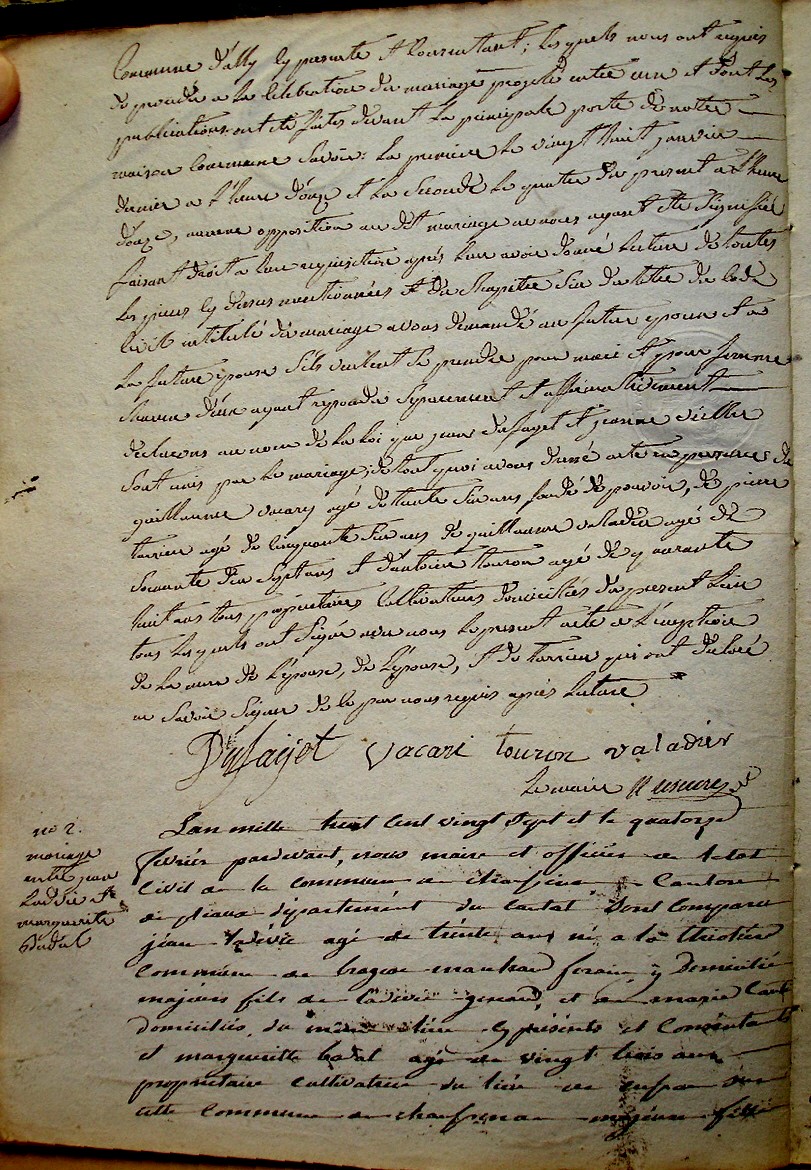 Commune d'ally cy presente et Consentant; lesquels nous ont requis
de proceder a la celebration du mariage projeté entre eux et dont les
publications ont été faites devant la principale porte de notre
maison Commune Savoir: la premiere le vingt huit janvier
dernier a l'heure d'onze et la Seconde le quatre du present a l'heure
d'onze, aucune opposition au dit mariage ne nous ayant été Signifiée
faisant droit a leur requisition après leur avoir donné lecture de toutes
les pieces cy dessus mentionnées et du Chapitre Six du titre du Code
Civil intitulé du mariage avons demandé au futur epoux et a
la future epouse s'ils veulent se prendre pour mari et pour femme
chacun d'eux ayant repondu Separement et affirmativement
declarons au nom de la loi que jean dufayet et jeanne
Sont unis par le mariage; de tout quoi avons dressé acte en presence de
guillaume vacary agé de trente Six ans fondé de pouvoir, de pierre
terrieu agé de Cinquante Six ans de guillaume valadier agé de
Soixante dix Sept ans et d'antoine touron agé de quarante
huit ans tous proprietaires Cultivateurs domiciliés du present lieu
tous lesquels ont Signé avec nous le present acte a l'exception
de la mere de l'epouse, de l'epouse, et de terrieu qui ont declaré
ne Savoir Signer de ce par nous requis après lecture
Dufayet vacari touron valadier
Le maire
n° 2.
mariage
entre jean
Ladvie et
marguerite
Badal
L'an mille huit Cent vingt Sept et le quatorze
fevrier pardevant, nous maire et officier de l'etat
Civil de la commune de Canton
de pleaux département du Cantal Sont Comparu
jean Ladvie agé de trente ans né a la
Commune de marchand forain y Domicilié
majeur fils de Ladvie geraud, et de marie
domiciliés du meme lieu cy présents et Consentants
et marguerite badal agé de vingt trois ans
propriétaire cultivateur du lieu de
cette Commune de majeure fille